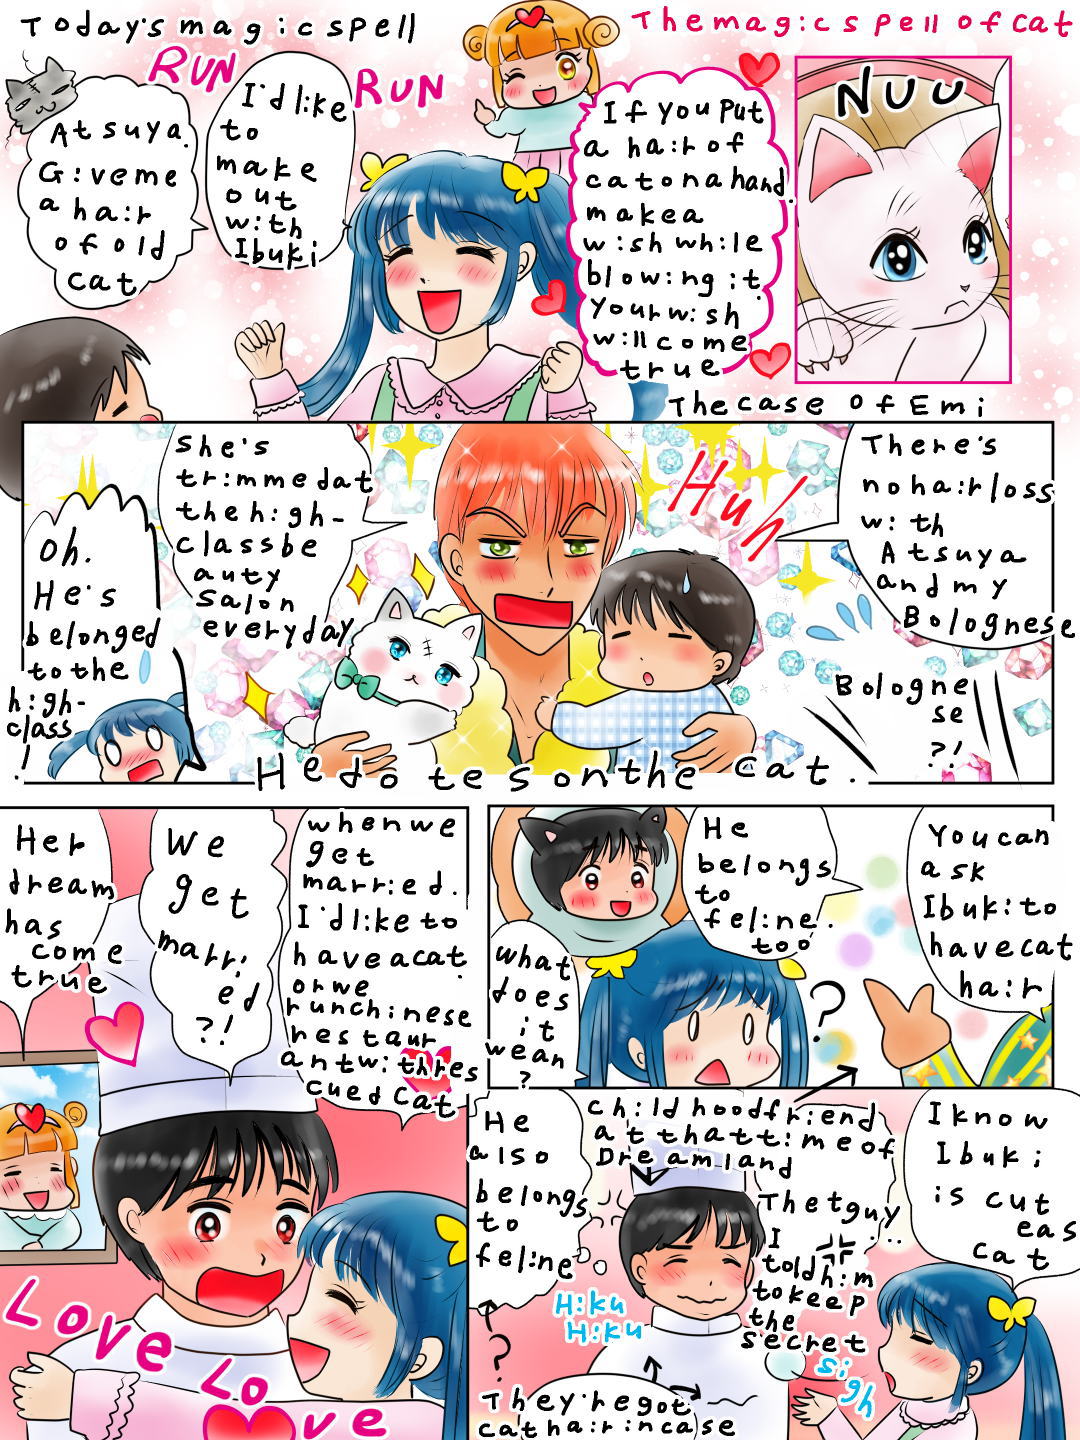 Today's magic spell
The magic spell of cat
RUN
RUN
Atsuya.
Give me
a hair
of old
cat
I'd like
to
make
out
with
Ibuki
If you put
a hair of
cat on a hand.
make a
wish while
blowing it.
your wish
will come
true
Nuu
The case of Emi
She's
trimmed at
the high-
class be
auty
salon
everyday
Oh.
He's
belonged
to the
high-
class
!
Huh
There's
no hair loss
with
Atsuya
and my
Bolognese
Bologne
se
?!
He dotes on the cat.
Her
dream
has
come
true
We
get
marri
ed
?!
when we
get
married.
I'd like to
have a cat.
or we
run chinese
restaur
ant with res
cued cat
Love Lo
ve
He
belongs
to
feline.
too
You can
ask
Ibuki to
have cat
hair
What
does
it
wean
?
?
He
also
belongs
to
feline
childhood friend
at that time of
Dreamland
The tguy
...
I
told him
to keep
the
secret
I know
Ibuki
is cut
e as
cat
Hiku
Hiku
sigh
?
They're got
cat hair in case